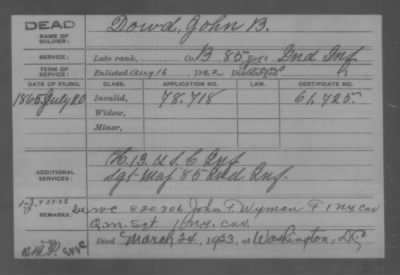 DEAD
NAME OF SOLDIER: Dowd, John B.
SERVICE: Late rank, Co. B, 85 Reg't Ind Inf.
TERM OF SERVICE: Enlisted Aug 16, 1862 Discharged
DATE OF FILING. CLASS. APPLICATION NO. LAW. CERTIFICATE NO.
1865 July 20 Invalid, 78.718 61,425.
Widow,
Minor,
ADDITIONAL SERVICES: K. 13 U.S. C Inf
Sgt Maj 85 Ind Inf.
REMARKS: WC 820706 John F. Wyman F 1 NY Cav
Q.M. Sgt. 1 N.Y. Cav.
Died March 24, 1923, at Washington, DC